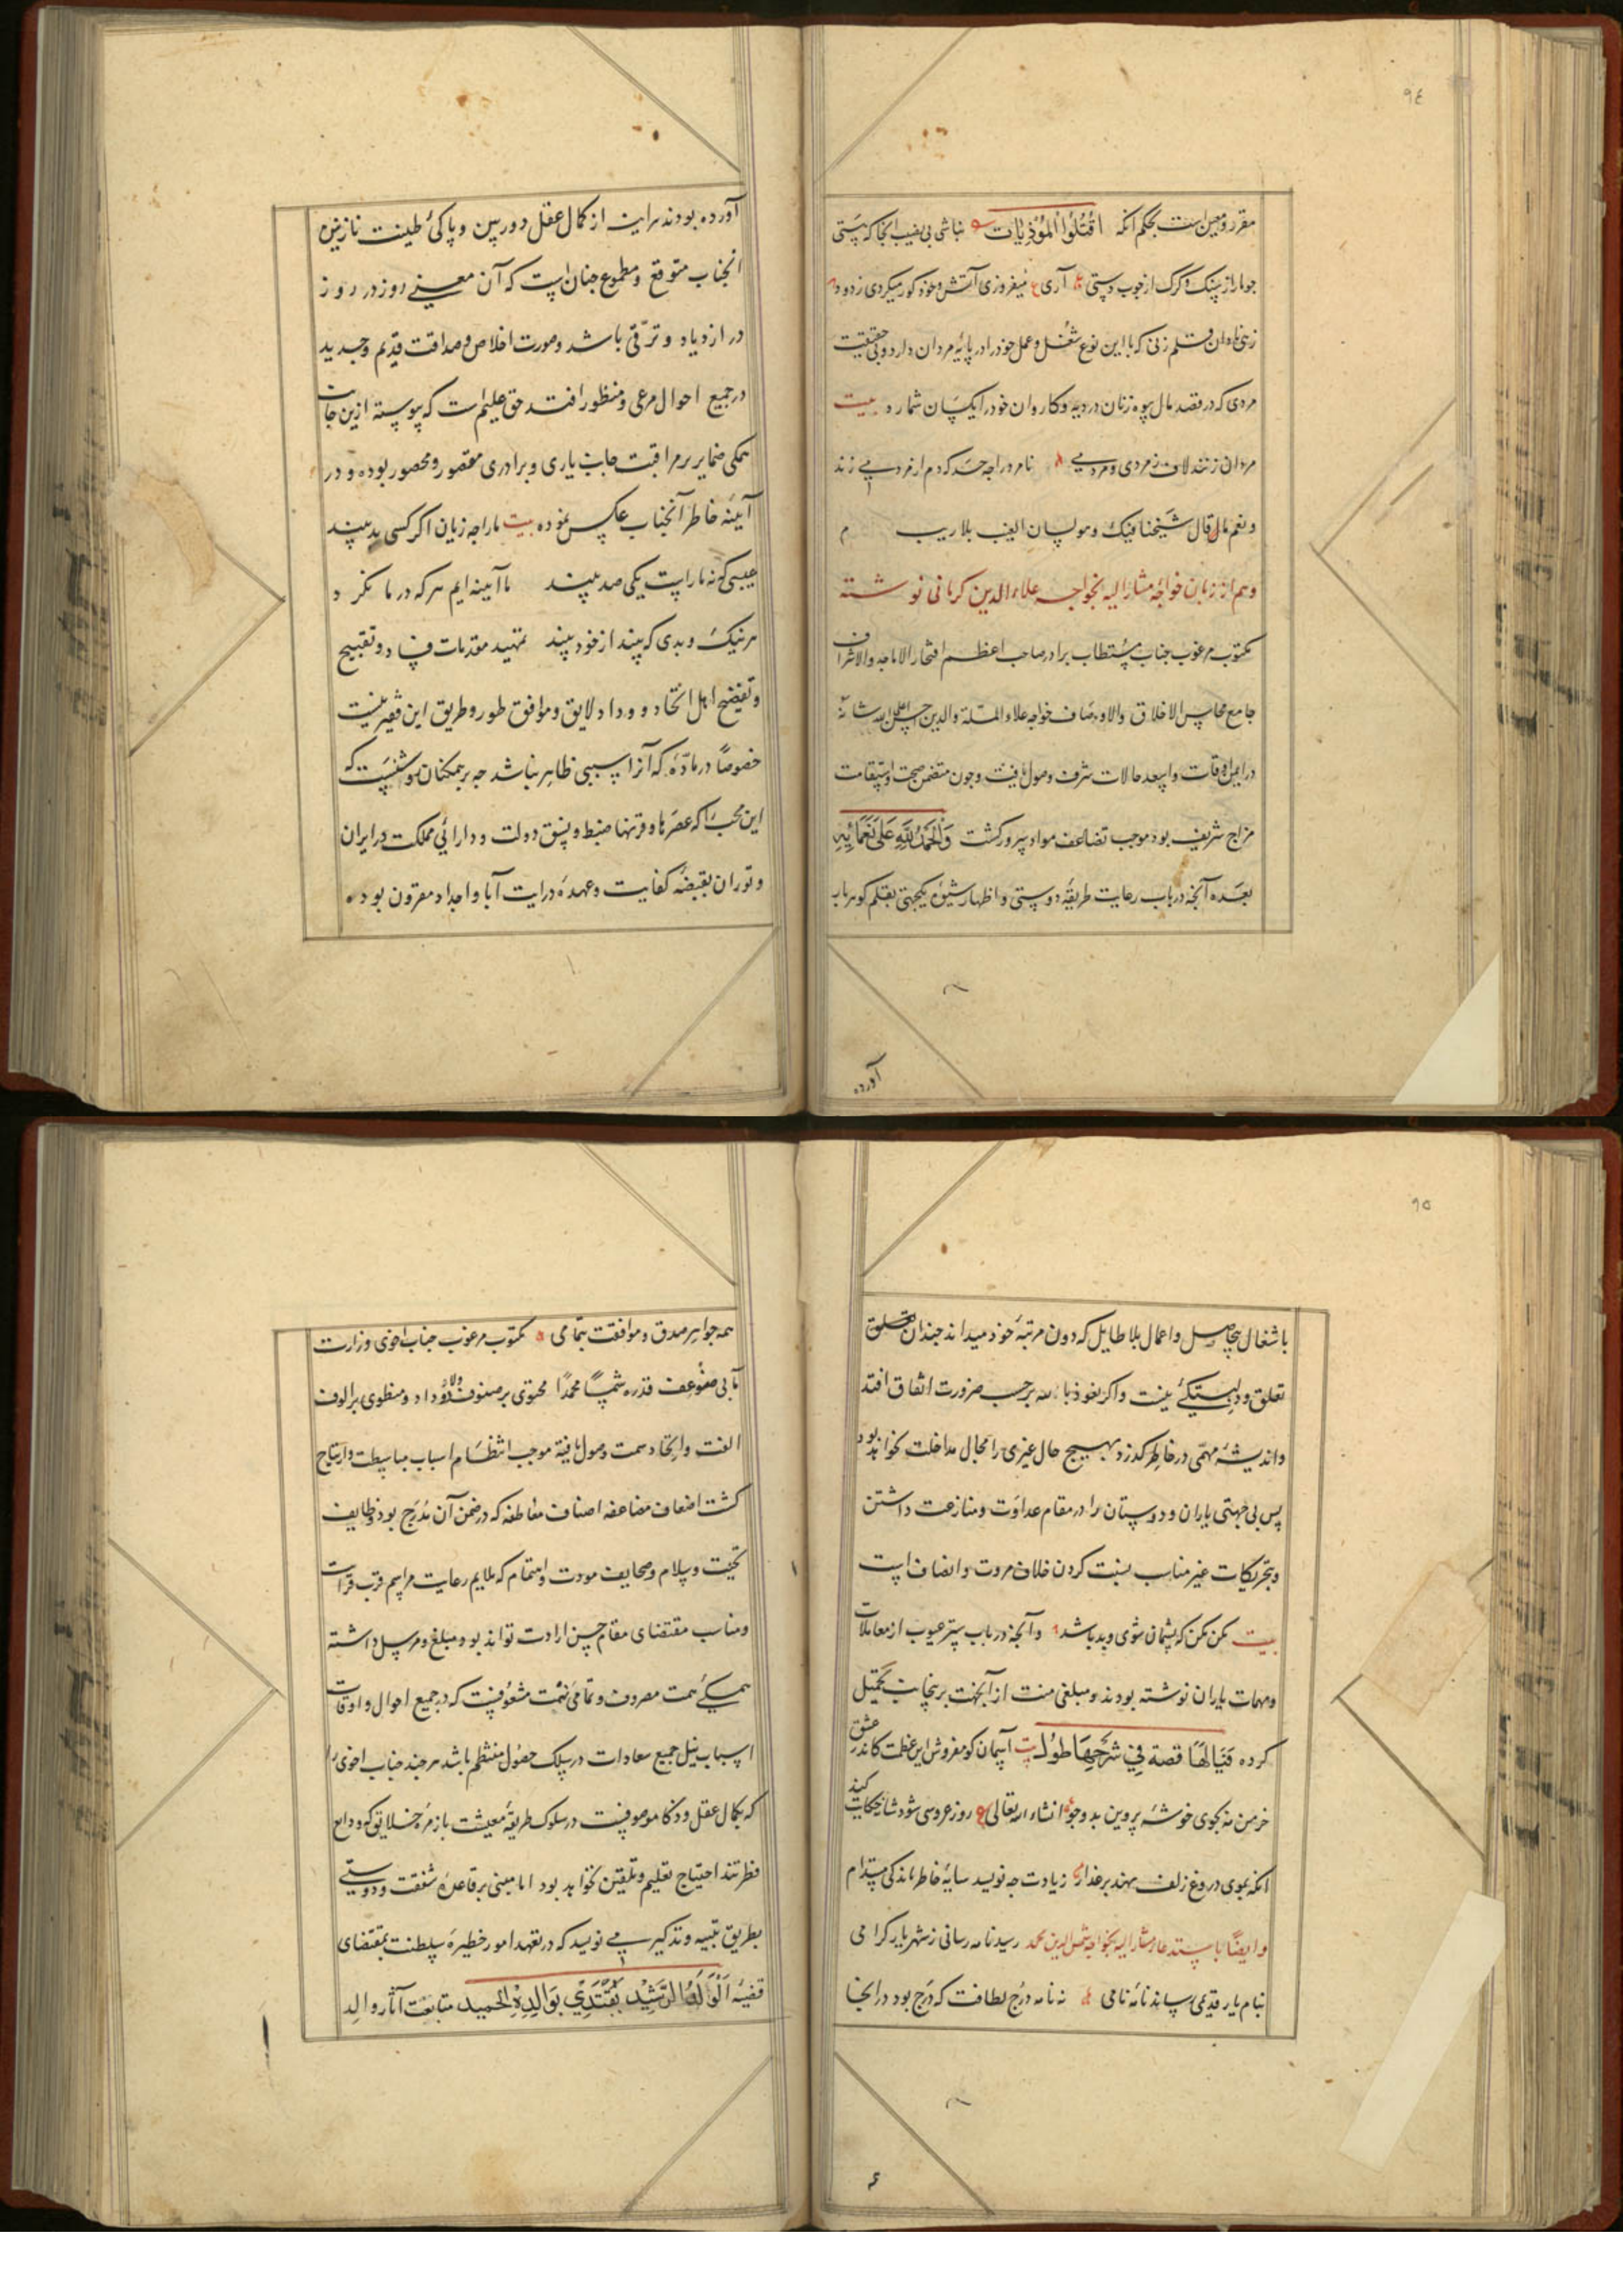 ٩٤
مقرر و معین است بحکم انکه اُقْتُلُوْا الْمُوْذِيَات نباشی بی نصیب انجا که هستی
جو مار از سنک و کرک از جوب دستی آری ع میفروزی آتش و خود کور میکردی ز دود
زنی نادان و سلم زنی که با این نوع شغل و عمل خود را در پایهٔ مردان دارد و بی حقیقت
مردی که در قصد مال بیوه زنان در دیه و کاروان خود را یکسان شمارد بیت
مردان زنند لاف ز مردی و مردمی نامرد را جه حد که دم از مرد می زند
و نعم ما قال شیخنا فیک و مولیان الیف بلا ریب
و هم از زبان خواجهٔ مشار الیه بخواجه علاء الدین کرمانی نوشته
مکتوب مرغوب جناب مستطاب برادر صاحب اعظم افتخار الاماجد والاشراف
جامع محاسن الاخلاق والاوصاف خواجه علاء الملة والدین حسن اعلی الله شانه
در ایمن اوقات و اسعد حالات شرف وصول یافت و جون متضمن صحت و استقامت
مزاج شریف بود موجب تضاعف مواد سرور کشت وَالْحَمْدُ لِلّٰهِ عَلَى نَعْمَائِهِ
بعده آنجه در باب رعایت طریقهٔ دوستی و اظهار شیوهٔ یکجهتی بقلم کوهربار
آورده
آورده بودند هراینه از کمال عقل دوربین و پاکئ طینت نازنین
انجناب متوقع و مطموع جنان است که آن معنی روز در روز
در ازدیاد و ترقی باشد و صورت اخلاص و صداقت قدیم و جدید
در جمیع احوال مرعی و منظور افتد حق علیم است که پیوسته ازین جانب
همکی ضمایر بر مراقبت جانب یاری و برادری مقصور و محصور بوده و در
آینهٔ خاطر آنجناب عکس نموده بیت ما را جه زیان اکر کسی بد بیند
عیبی که نه ما راست یکی صد بیند ما آینه ایم هر که در ما نکرد
هر نیک و بدی که بیند از خود بیند تمهید مقدمات فساد و تقبیح
و تفضیح اهل اتحاد و وداد لایق و موافق طور و طریق این فقیر نیست
خصوصاً در مادّهٔ که آنرا سببی ظاهر نباشد جه بر همکنان روشنست که
این محب را که عصرها و قرنها ضبط و نسق دولت و دارائی مملکت در ایران
و توران بقبضهٔ کفایت و عهدهٔ درایت آبا و اجداد مقرون بوده
٩٥
باشغال بیحاصل و اعمال بلاطایل که دون مرتبهٔ خود میداند جندان تعلق
تعلق و دلبستکئ نیست و اکر نعوذ بالله بر حسب ضرورت اتفاق افتد
و اندیشهٔ مهمّی در خاطر کذرد بهیج حال غیری را مجال مداخلت نخواهد بود
پس بی جهتی یاران و دوستان را در مقام عداوت و منازعت داشتن
و بتحریکات غیر مناسب نسبت کردن خلاف مروت و انصاف است
بیت مکن مکن که پشیمان شوی و بد باشد و آنجه در باب ستر عیوب از معاملات
و مهمات یاران نوشته بودند و مبلغی منت از آن جهت برینجانب تحمیل
کرده فَيَالَهَا قصة فِي شَرْحِهَا طُول بیت آسمان کو مفروش این عظمت کاندر عشق
خرمن مه بجوی خوشهٔ پروین بدو جو انشاء الله تعالی ع روز عروسی شود شانه حکایت کند
انکه بموی دروغ زلف نهد بر عذار زیادت جه نویسد سایهٔ خاطر ماندکی مستدام
و ایضًا باستدعاء مشار الیه بخواجه شمس الدین محمد رسید نامه رسانی ز شهریار کرامی
بنام یار قدیمی رساند نامهٔ نامی نه نامه دُرج لطافت که درج بود در انجا
همه جواهر صدق و موافقت بتمامی مکتوب مرغوب جناب اخوی وزارت
مآبی ضوعف قدره شمساً محمداً محتوی بر صنوف ولا و وداد و منطوی بر الوف
الفت و اتحاد سمت وصول یافته موجب انتظام اسباب مباسطت و ابتهاج
کشت اضعاف مضاعفه اصناف معاطفه که در ضمن آن مدرج بود وظایف
تحیت و سلام و صحایف مودت و اهتمام که ملایم رعایت مراسم قرب قرابت
و مناسب مقتضای مقام حسن ارادت تواند بود مبلغ و مرسل داشته
همکئ همت مصروف و تمامئ نهمت مشعوفست که در جمیع احوال و اوقات
اسباب نیل جمیع سعادات در سلک حصول منتظم باشد هر جند جناب اخوی را
که بکمال عقل و ذکا موصوفست در سلوک طریقهٔ معیشت با زمرهٔ خلایق که ودایع
فطرتند احتیاج تعلیم و تلقین نخواهد بود اما مبنی بر قاعدهٔ شفقت و دوستی
بطریق تنبیه و تذکیر می نویسد که در تعهد امور خطیرهٔ سلطنت بمقتضای
قضیهٔ اَلْوَلَدُ الرَّشِيْدُ يَقْتَدِي بِوَالِدِهِ الْحَمِيدِ متابعت آثار والد